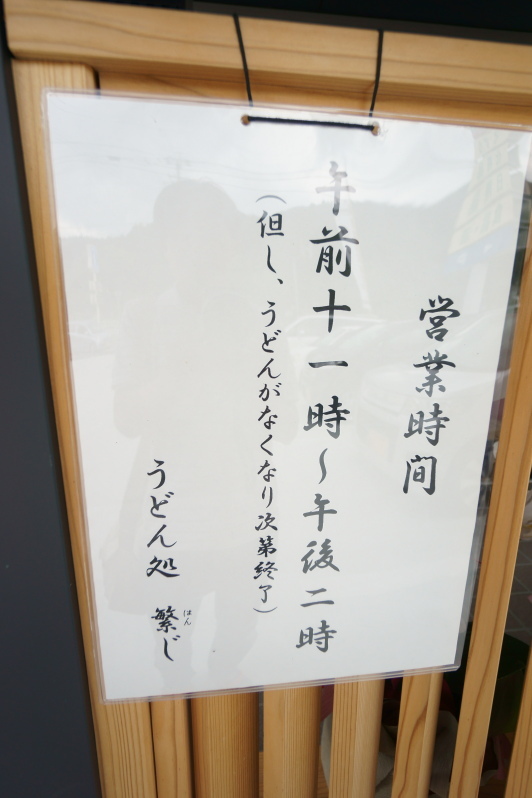 営業時間
午前十一時～午後二時
（但し、うどんがなくなり次第終了）
うどん処 繁じ
はん